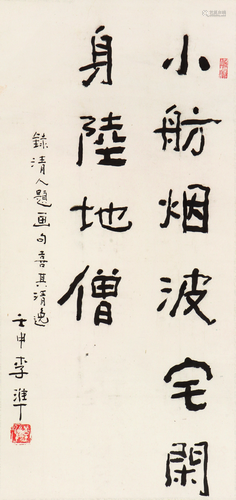 小舫烟波宅閑
身陸地僧
錄清人題画句喜其清逸
壬申李雒